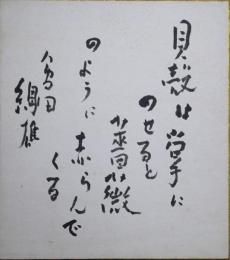 貝殻は掌手に
のせると
薔薇
のように赤らんで
くる
会田
綱雄